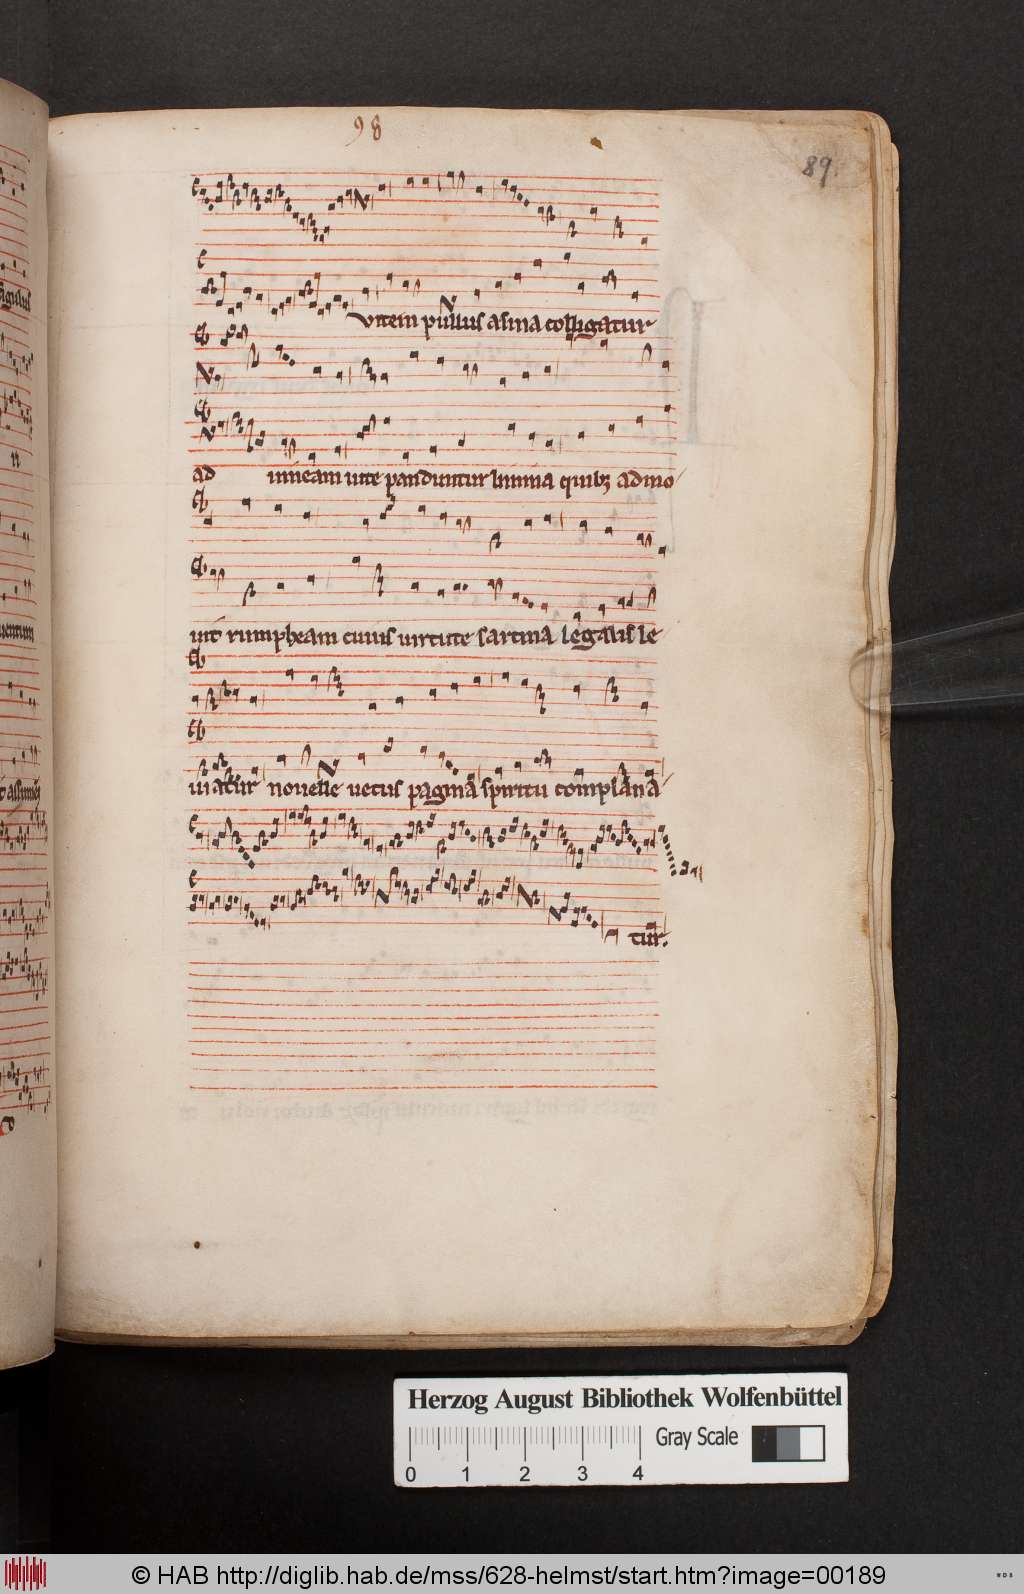 98
89
vitem pullus asina colligatur
ad vineam vite panduntur limina quibꝫ admo
uit rumpheam cuius uirtute sartina legalis le
uiatur nouelle uetus pagina spiritu complana
tur.
Herzog August Bibliothek Wolfenbüttel
Gray Scale
0 1 2 3 4
© HAB http://diglib.hab.de/mss/628-helmst/start.htm?image=00189